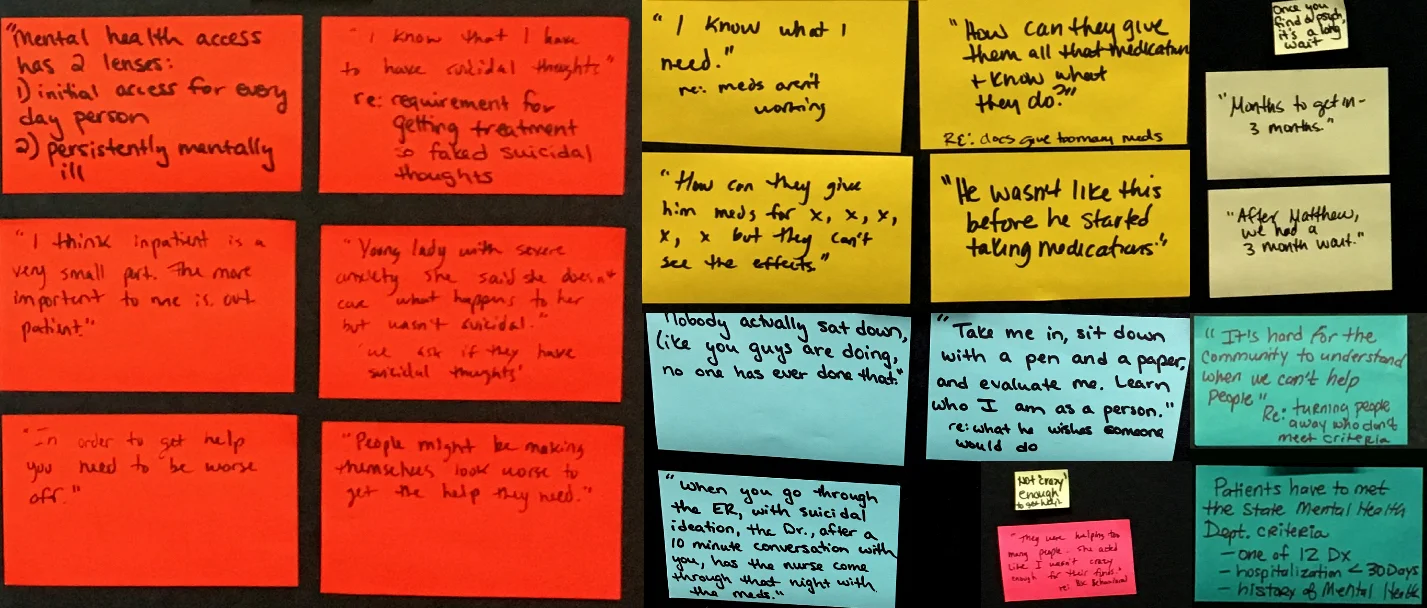 "Mental health access
has 2 lenses:
1) initial access for every
day person
2) persistently mentally
ill
"I know that I have
to have suicidal thoughts"
re: requirement for
getting treatment
so faked suicidal
thoughts
"I think inpatient is a
very small part. The more
important to me is out
patient."
"Young lady with severe
anxiety she said she doesn't
care what happens to her
but wasn't suicidal."
'we ask if they have
suicidal thoughts'
"In order to get help
you need to be worse
off."
"People might be making
themselves look worse to
get the help they need."
"I know what I
need."
re: meds aren't
working
"How can they give
them all that medication
+ know what
they do?"
RE: docs give too many meds
"How can they give
him meds for x, x, x,
x, x but they can't
see the effects."
"He wasn't like this
before he started
taking medications."
Once you
find a psych,
it's a long
wait
"Months to get in-
3 months."
"After Matthew,
we had a
3 month wait."
Nobody actually sat down,
like you guys are doing,
no one has ever done that."
"Take me in, sit down
with a pen and a paper,
and evaluate me. Learn
who I am as a person."
re: what he wishes someone
would do
"It's hard for the
community to understand
when we can't help
people"
Re: turning people
away who don't
meet criteria
"When you go through
the ER, with suicidal
ideation, the Dr., after a
10 minute conversation with
you, has the nurse come
through that night with
the meds."
Not 'crazy'
enough
to get help
"They were helping too
many people. She acted
like I wasn't crazy
enough for their funds."
re: Behavioral
Patients have to met
the State Mental Health
Dept. criteria
- one of 12 Dx
- hospitalization < 30 Days
- history of Mental Health